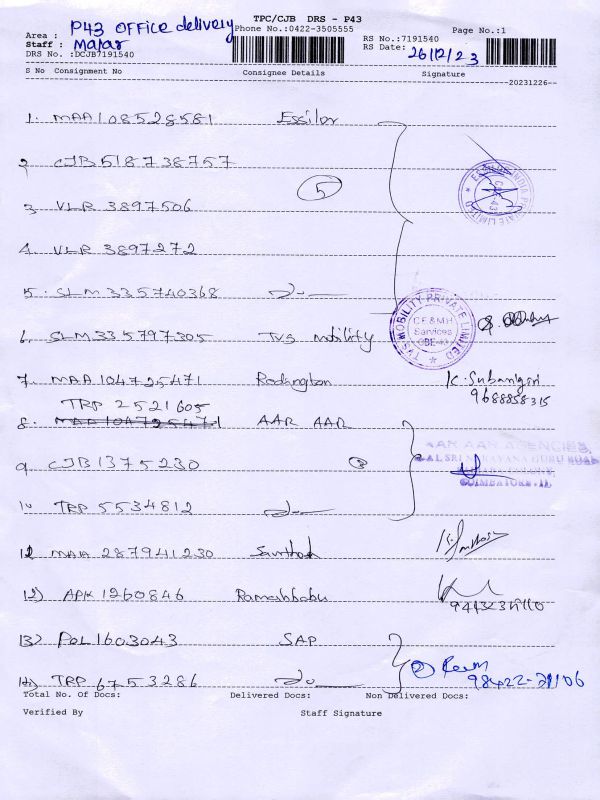 TPC/CJB DRS - P43
Area : P43 OFFICE delivery Phone No.:0422-3505555 Page No.:1
Staff : RS No.:7191540
DRS No. :DCJB7191540 RS Date: 26/12/23
S No Consignment No Consignee Details Signature
20231226
1. MAA108528581 Essilor
2 CJB518738757
5
3 VLR 3897506
4. VLR 3897272
5. SLM 335740368 Do
6. SLM 335797305 TVS mobility
TVS MOBILITY PRIVATE LIMITED
CE&MH
Services
CBE-43
7. MAA 104725471 Redington K. Subangari
9688858315
TRP 2521605
8. MAA104725471 AAR AAR
AAR AAR AGENCIES,
SRI NARAYANA GURU ROAD
COIMBATORE-11.
9 CJB1375230 3
10 TRP 5534812 Do
12 MAA 287941230 Santhosh
12) APK 1260846 Rameshbabu
13) POL1603043 SAP
14) TRP 6753286 Do 2 98422-21106
Total No. Of Docs: Delivered Docs: Non Delivered Docs:
Verified By Staff Signature